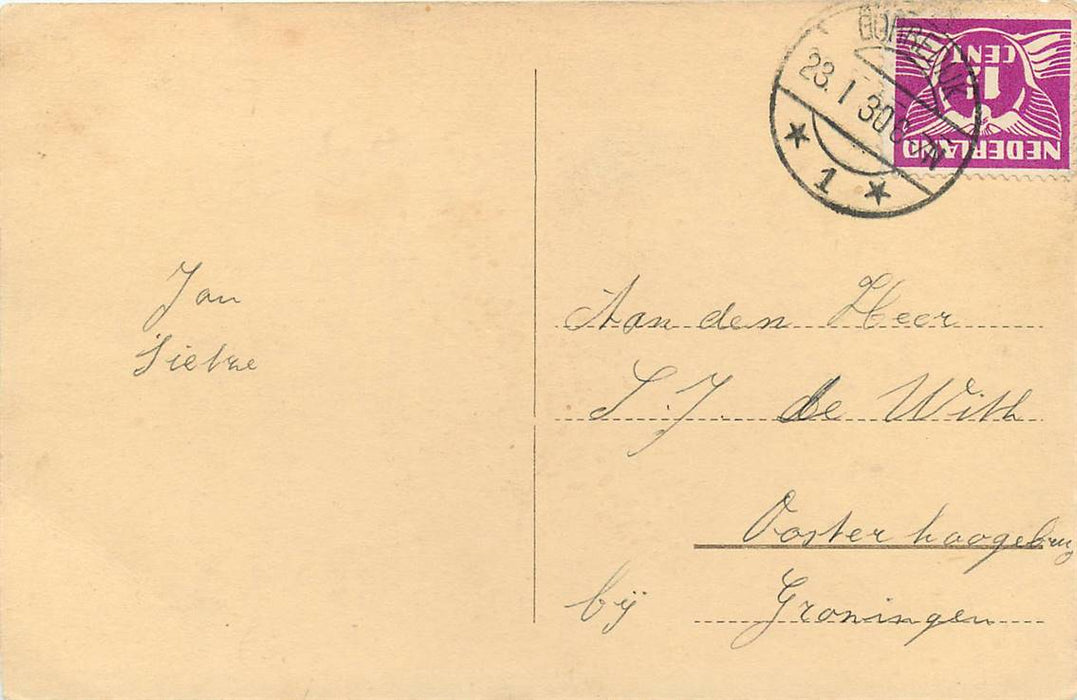 23.1 30 6-7N
★ 1 ★
NEDERLAND
CENT
Jan
Sietze
Aan den Heer
S. J. de With
Oosterhoogebrug
bij Groningen